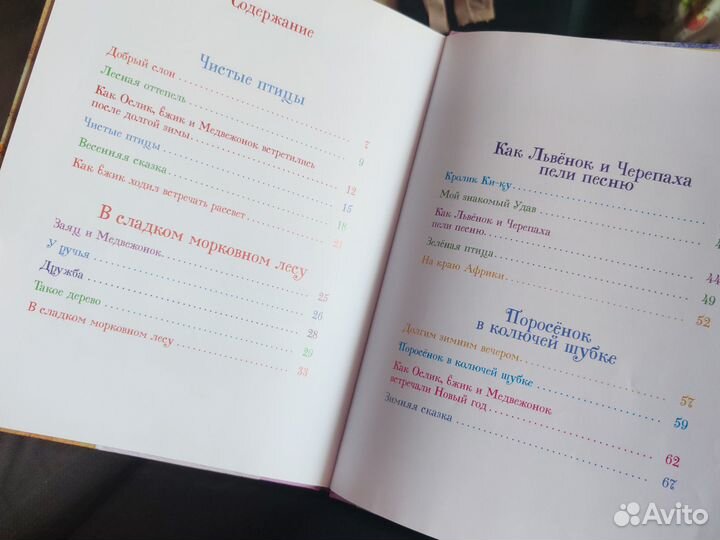 Содержание
Чистые птицы
Добрый слон 7
Лесная оттепель 9
Как Ослик, Ёжик и Медвежонок встретились
после долгой зимы 12
Чистые птицы 15
Весенняя сказка 18
Как Ёжик ходил встречать рассвет 21
В сладком морковном лесу
Заяц и Медвежонок 25
У ручья 26
Дружба 28
Такое дерево 29
В сладком морковном лесу 33
Как Львёнок и Черепаха
пели песню
Кролик Ки-ку
Мой знакомый Удав
Как Львёнок и Черепаха
пели песню 44
Зелёная птица 49
На краю Африки 52
Поросёнок
в колючей шубке
Долгим зимним вечером 57
Поросёнок в колючей шубке 59
Как Ослик, Ёжик и Медвежонок
встречали Новый год 62
Зимняя сказка 67
Avito